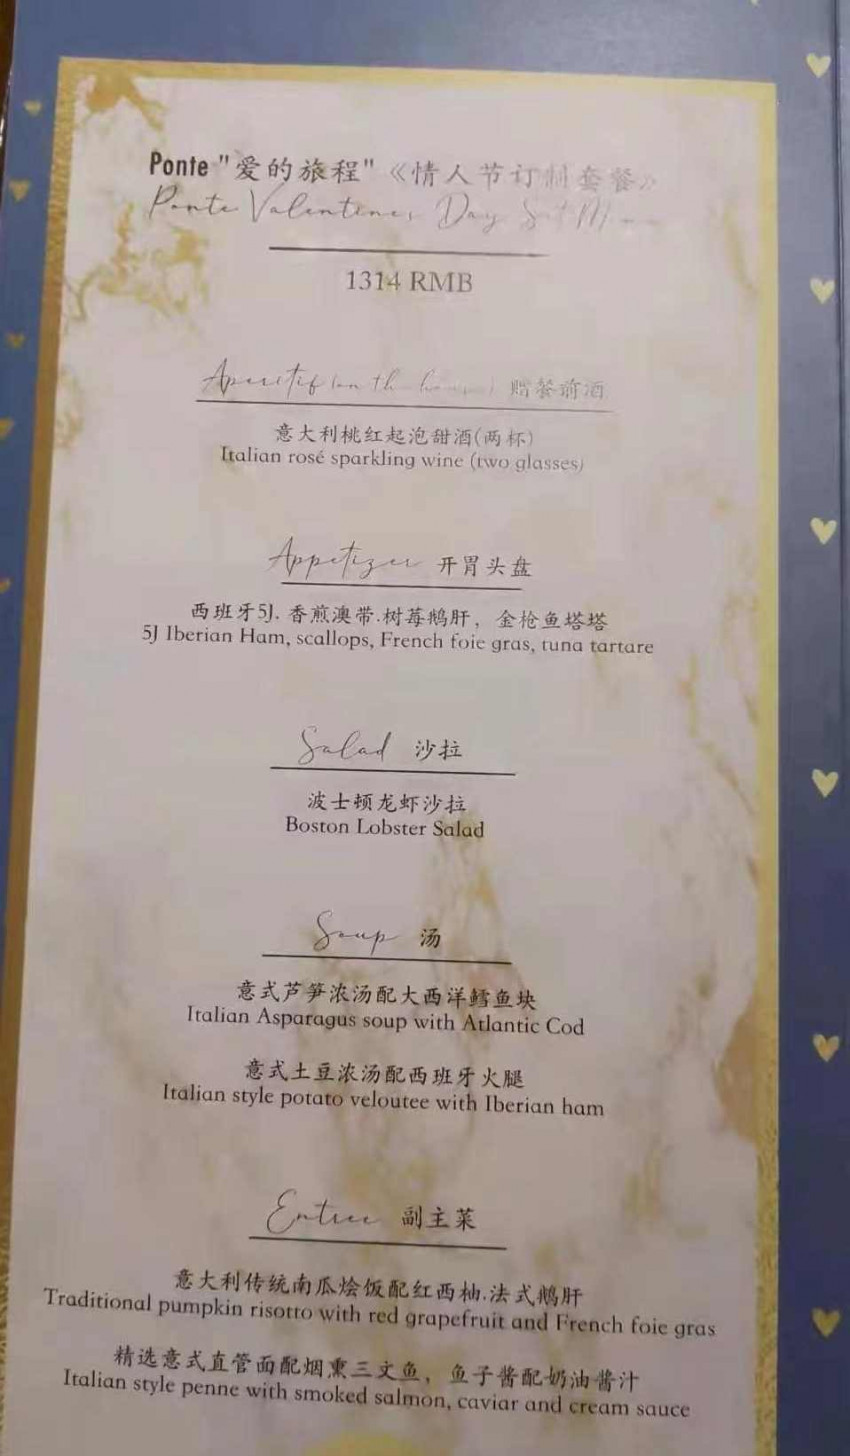 Ponte "爱的旅程"《情人节订制套餐》
Ponte Valentines Day Set Menu
1314 RMB
Aperitif (on the house) 赠餐前酒
意大利桃红起泡甜酒(两杯)
Italian rosé sparkling wine (two glasses)
Appetizer 开胃头盘
西班牙5J. 香煎澳带.树莓鹅肝，金枪鱼塔塔
5J Iberian Ham, scallops, French foie gras, tuna tartare
Salad 沙拉
波士顿龙虾沙拉
Boston Lobster Salad
Soup 汤
意式芦笋浓汤配大西洋鳕鱼块
Italian Asparagus soup with Atlantic Cod
意式土豆浓汤配西班牙火腿
Italian style potato veloutee with Iberian ham
Entree 副主菜
意大利传统南瓜烩饭配红西柚.法式鹅肝
Traditional pumpkin risotto with red grapefruit and French foie gras
精选意式直管面配烟熏三文鱼，鱼子酱配奶油酱汁
Italian style penne with smoked salmon, caviar and cream sauce